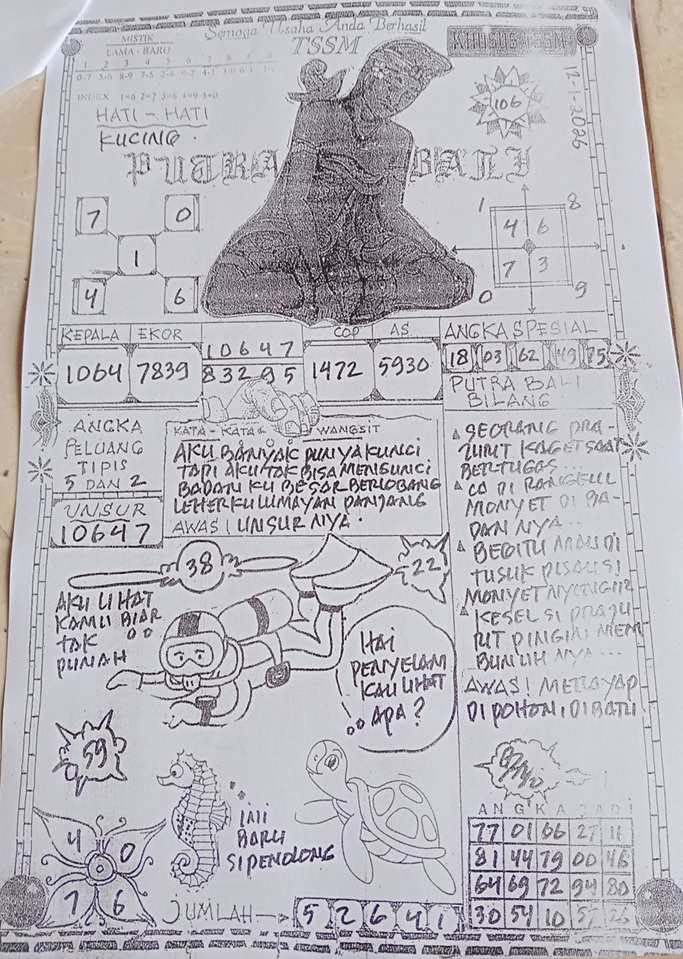 Semoga Usaha Anda Berhasil
MISTIK
LAMA - BARU
TSSM
KHUSUS TSSM
1 2 3 4 5 6 7 8 9 0
INDEX 1=6 2=7 3=8 4=9 5=0
12-1-2026
106
HATI - HATI
KUCING.
PUTRA BALI
7 0
1
4 6
1 8
4 6
7 3
0 9
KEPALA EKOR COP AS ANGKA SPESIAL
1064 7839 10647 1472 5930 18 03 62 49 75
83295
PUTRA BALI
BILANG
ANGKA
PELUANG
TIPIS
5 DAN 2
UNSUR
10647
KATA - KATA & WANGSIT
AKU BANYAK PUNYA KUNCI
TAPI AKU TAK BISA MENGUNCI
BADAN KU BESAR BERLOBANG
LEHERKU LUMAYAN PANJANG
AWAS! UNSUR NYA.
SEORANG PRA-
JURIT KAGET SAAT
BERTUGAS...
DI RANGKUL
MONYET DI BA-
DAN NYA..
BEGITU MAU DI
TUSUK PISAU SI
MONYET NYENGIR
KESEL SI PRAJU-
RIT PINGIN MEM
BUNUH NYA...
AWAS! MERAYAP
DI POHON, DI BATU
38
22
AKU LIHAT
KAMU BIAR
TAK
PUNAH
HAI
PENYELAM
KAU LIHAT
APA?
59
INI
BARU
SI PENOLONG
4 0
7 6
JUMLAH 5 2 6 4 1
ANGKA JADI
77 01 66 27 11
81 44 79 00 46
64 69 72 94 80
30 54 10 57 26